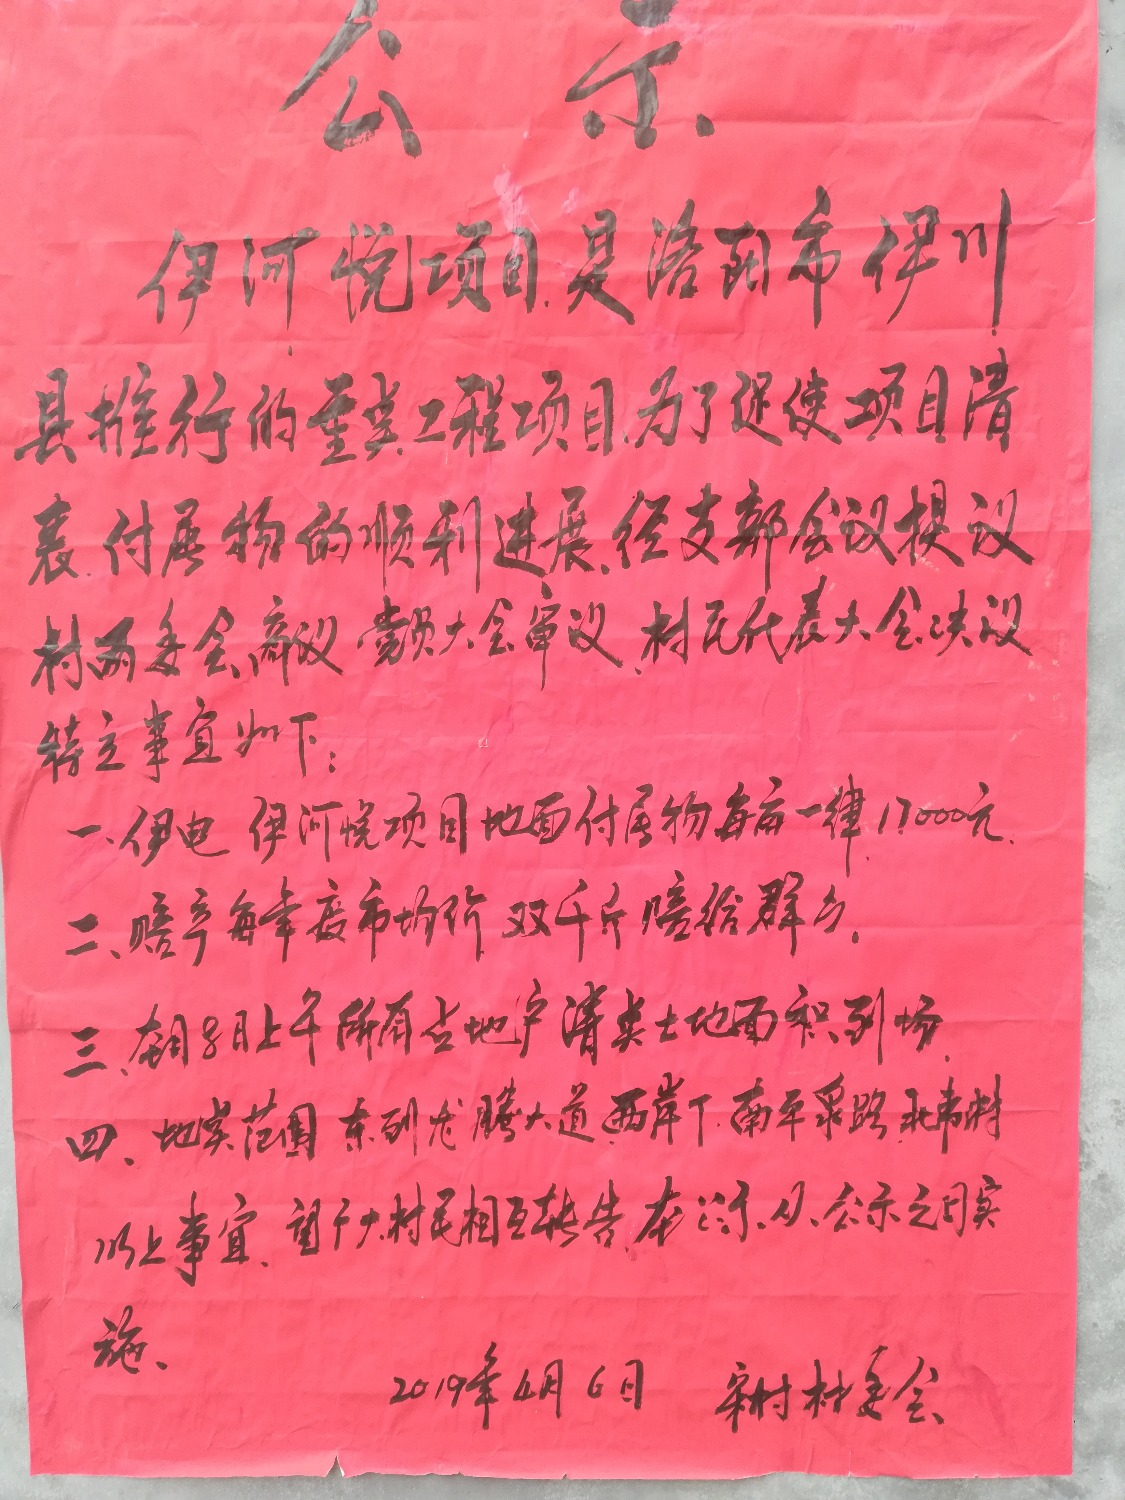 公示
伊河悦项目.是洛阳市伊川
县推行的重点工程项目.为了促使项目清
表.付属物的顺利进展.经支部会议提议
村两委会商议 党员大会审议.村民代表大会决议
特立事宜如下:
一.伊电 伊河悦项目地面付属物每亩一律17000元.
二、赔产每年度市场价 双千斤赔给群众.
三、8日上午所有占地户清点土地面积到场.
四、地类范围 东到龙腾大道 西岸下 南平泉路 北
以上事宜.望广大村民相互转告.在公示.从公示之日实
施、
2019年4月6日 宋村村委会